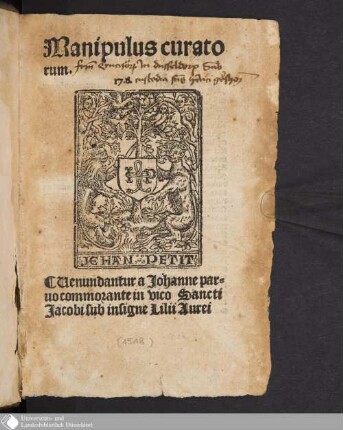 Manipulus curato
rum.
in dusseldorp
JEHAN PETIT
Uenundantur a Johanne par-
uo commorante in vico Sancti
Jacobi sub insigne Lilii Aurei
(1518)
Universitäts- und
Landesbibliothek Düsseldorf